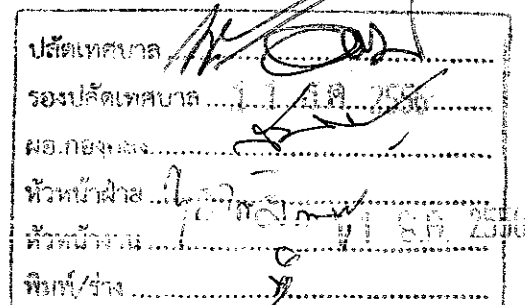 ปลัดเทศบาล
รองปลัดเทศบาล 11 ธ.ค. 2556
ผอ.กองคลัง
หัวหน้าฝ่าย
หัวหน้างาน 11 ธ.ค. 2556
พิมพ์/ร่าง